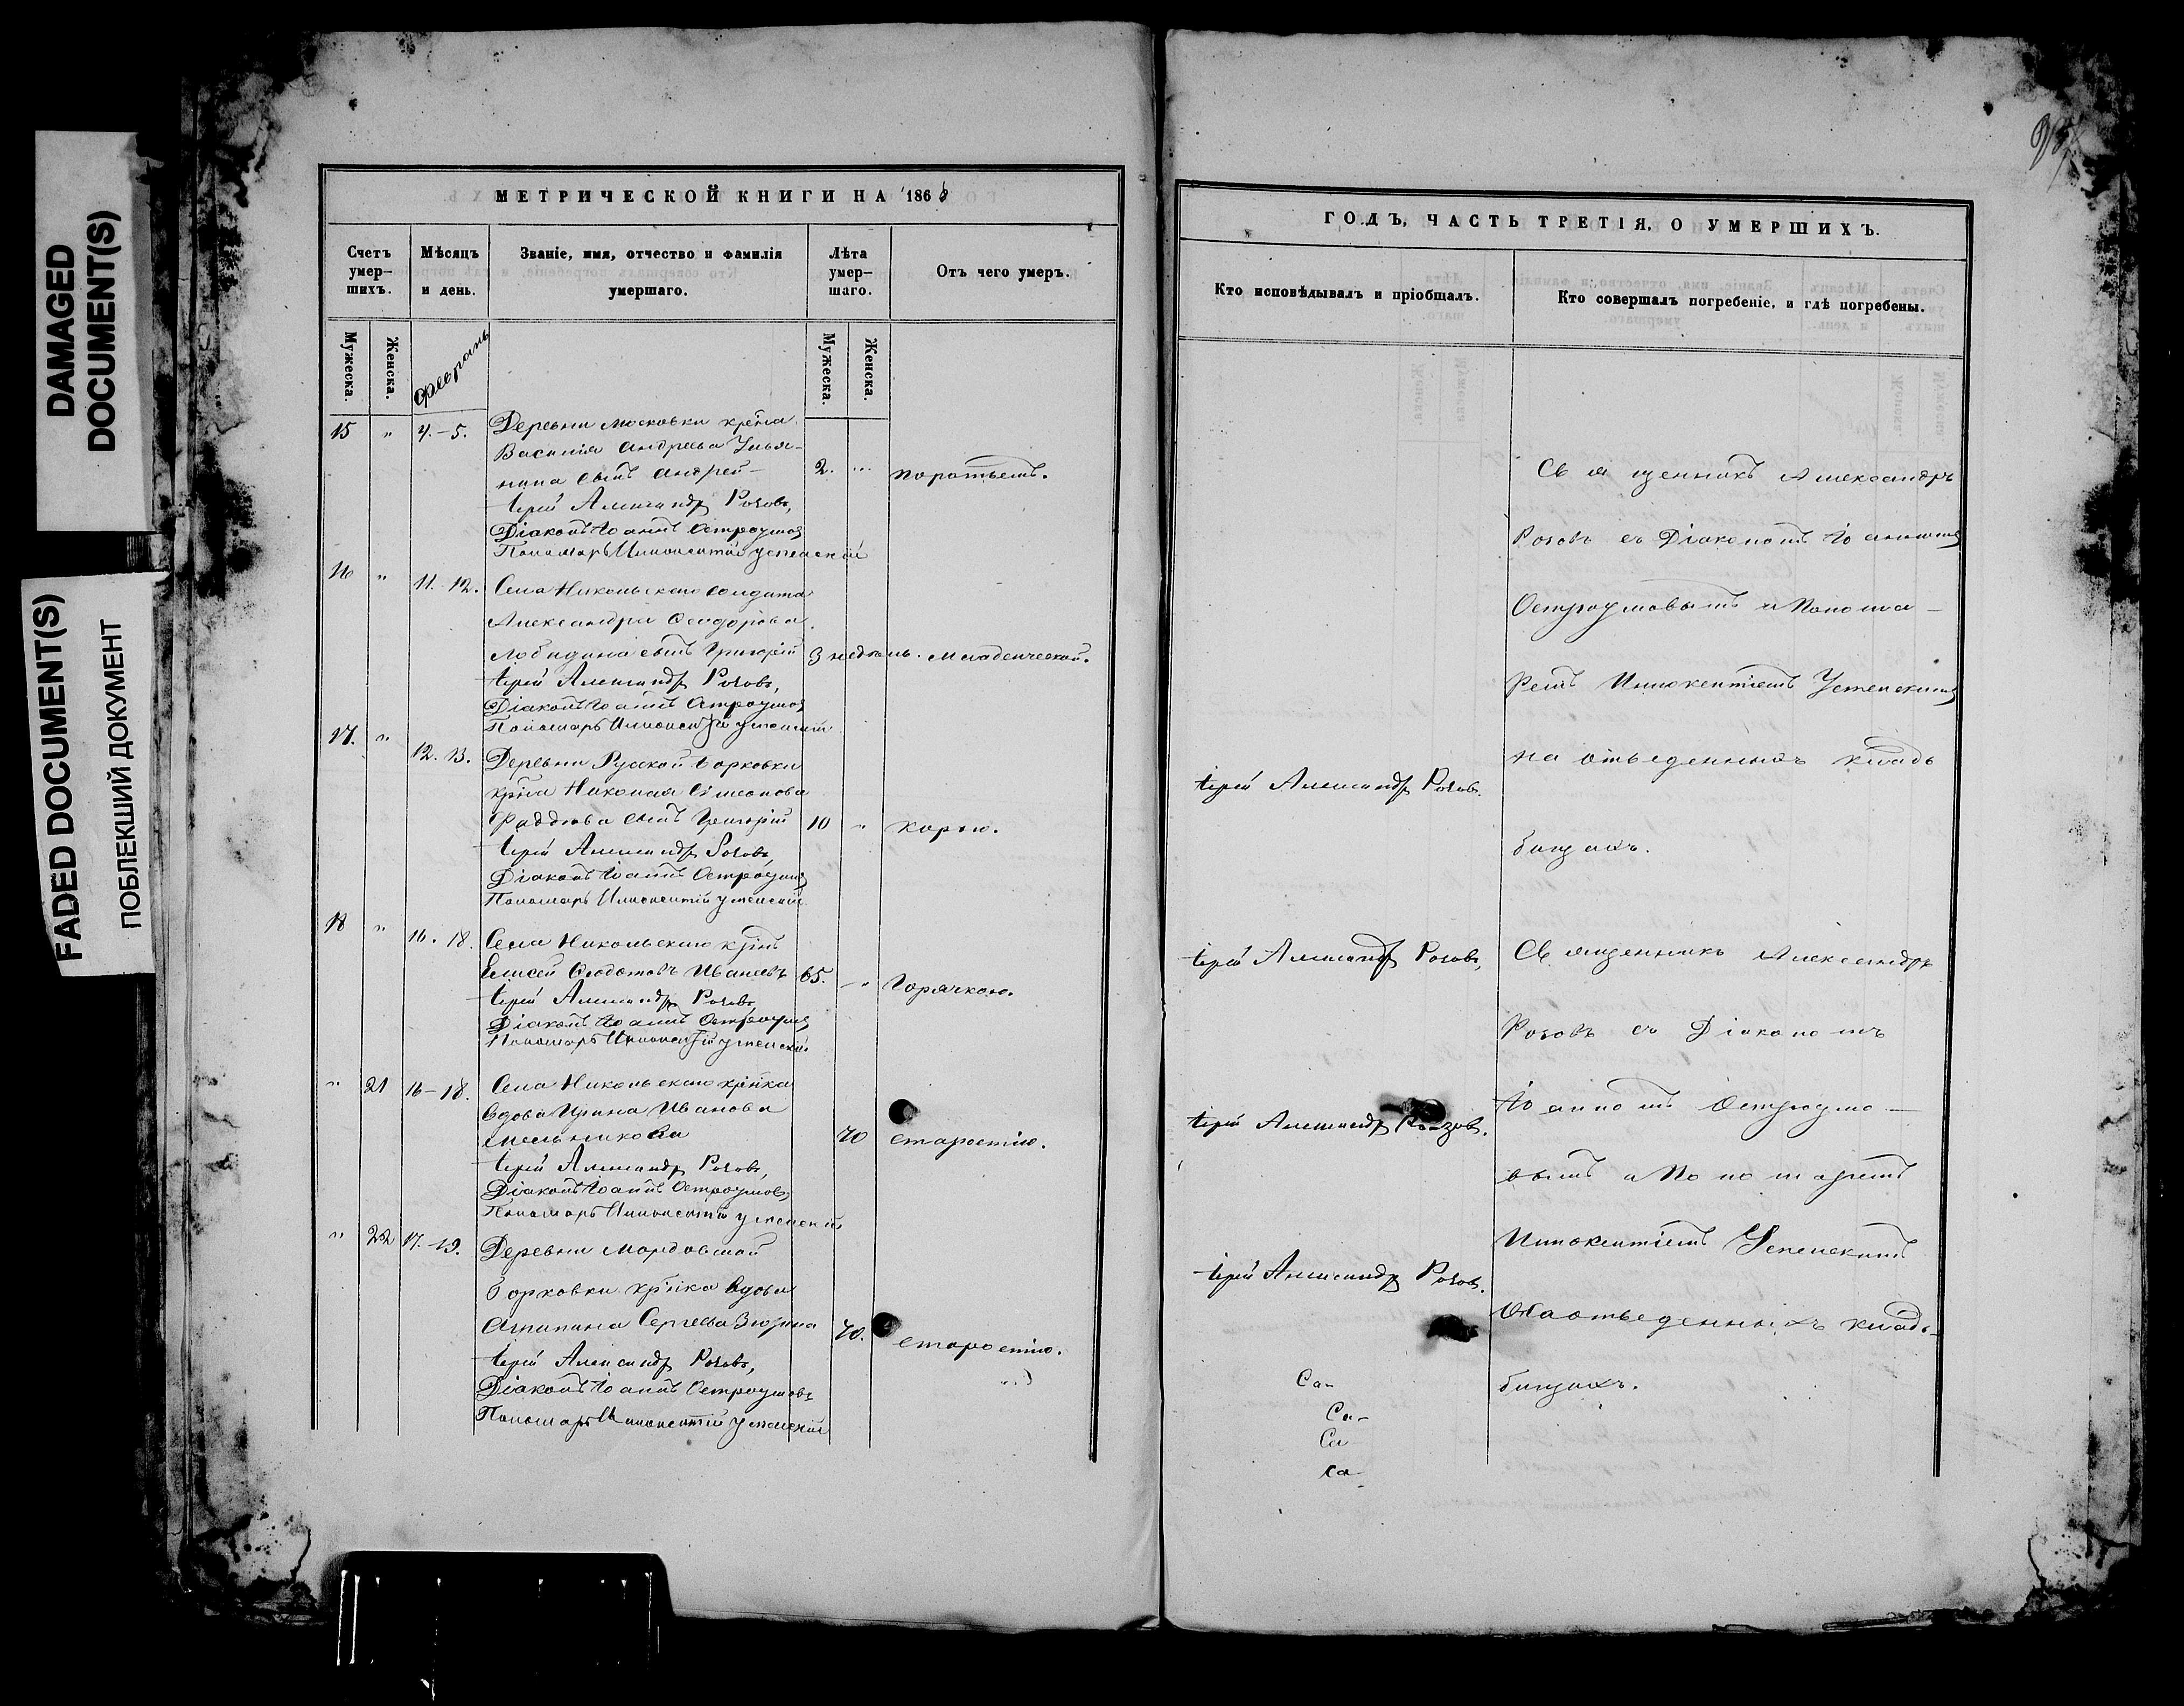 DAMAGED
DOCUMENT(S)
FADED DOCUMENT(S)
ПОБЛЕКШИЙ ДОКУМЕНТ
МЕТРИЧЕСКОЙ КНИГИ НА 1868
Счетъ умер-шихъ.
Мѣсяцъ и день.
Званіе, имя, отчество и фамилія умершаго.
Лѣта умер-шаго.
Отъ чего умеръ.
Мужеска.
Женска.
Февраль
Мужеска.
Женска.
15 " 4.-5. Деревни Московки
Василія Андреева Улья-
нина сынъ Андрей 2. "
Іерей Александръ Розовъ,
Діаконъ Іоаннъ Остроумовъ
Пономарь Иннокентій Успенскій
16 " 11.-12. Села Никольскаго солдата
Александра
сынъ Григорій 3 недѣль. младенческой.
Іерей Александръ Розовъ,
Діаконъ Іоаннъ Остроумовъ
Пономарь Иннокентій Успенскій
17. " 12.-13. Деревни Русской Борковки
Николая Симеонова
сынъ Григорій 10 " корью.
Іерей Александръ Розовъ,
Діаконъ Іоаннъ Остроумовъ
Пономарь Иннокентій Успенскій
18 " 16.-18. Села Никольскаго
Елисей Федотовъ 65. " горячкою.
Іерей Александръ Розовъ,
Діаконъ Іоаннъ Остроумовъ
Пономарь Иннокентій Успенскій
" 21 16-18. Села Никольскаго
вдова Ирина Иванова
Мельникова 70 старостію.
Іерей Александръ Розовъ,
Діаконъ Іоаннъ Остроумовъ
Пономарь Иннокентій Успенскій
" 22 17.-19. Деревни Мордовской
Борковки вдова
Агрипина Сергѣева 70. старостію.
Іерей Александръ Розовъ,
Діаконъ Іоаннъ Остроумовъ
Пономарь Иннокентій Успенскій
ГОДЪ, ЧАСТЬ ТРЕТІЯ, О УМЕРШИХЪ.
Кто исповѣдывалъ и пріобщалъ.
Кто совершалъ погребеніе, и гдѣ погребены.
Священникъ Александръ
Розовъ съ Діакономъ Іоанномъ
Остроумовымъ и Понома-
ремъ Иннокентіемъ Успенскимъ
на отведенныхъ клад-
бищахъ.
Іерей Александръ Розовъ.
Іерей Александръ Розовъ,
Священникъ Александръ
Розовъ съ Діакономъ
Іоанномъ Остроумо-
вымъ и Пономаремъ
Иннокентіемъ Успенскимъ
На отведенныхъ клад-
бищахъ.
Іерей Александръ Розовъ.
Іерей Александръ Розовъ.
Са-
Са-
Са
са-